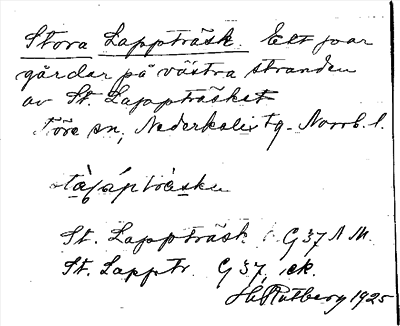 Stora Lappträsk. Ett par
gårdar på västra stranden
av St. Lappträsket
Töre sn, Nederkalix tg. Norrb. l.
St. Lappträsk G 37 N.M.
St. Lapptr. G 37, ek.
H. Rutberg 1925